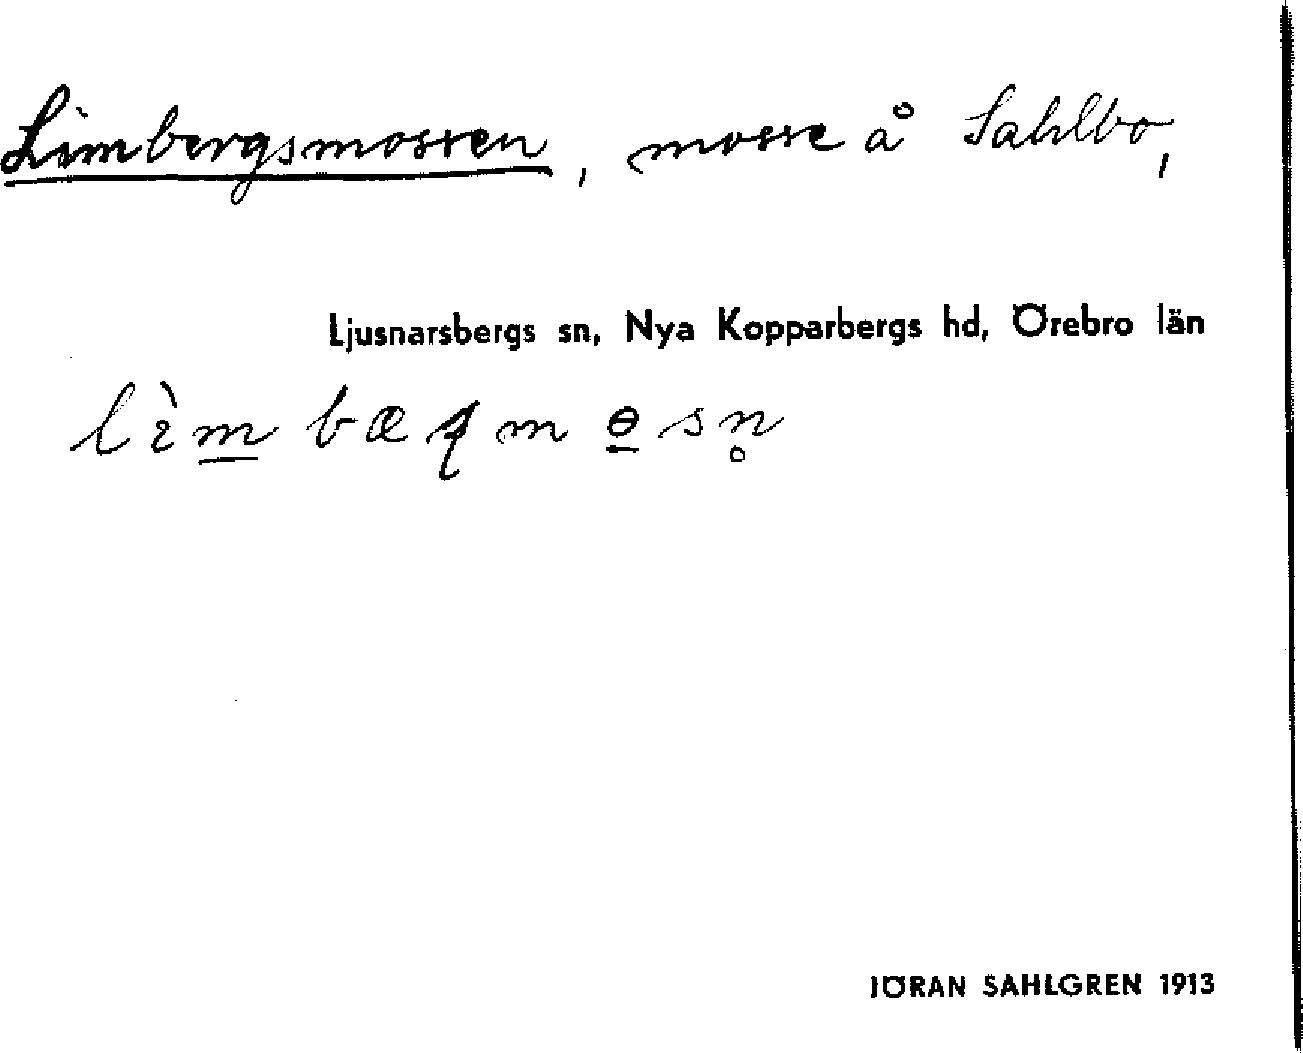 Limbergsmossen, mosse å Sahlbo,
Ljusnarsbergs sn, Nya Kopparbergs hd, Örebro län
JÖRAN SAHLGREN 1913